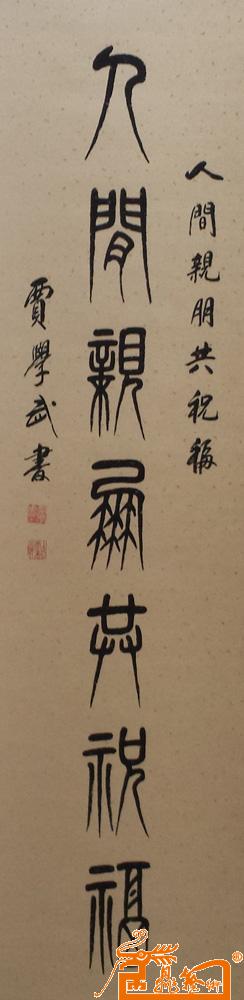 人間親朋共祝稱
人間親朋共祝福
賈學武書